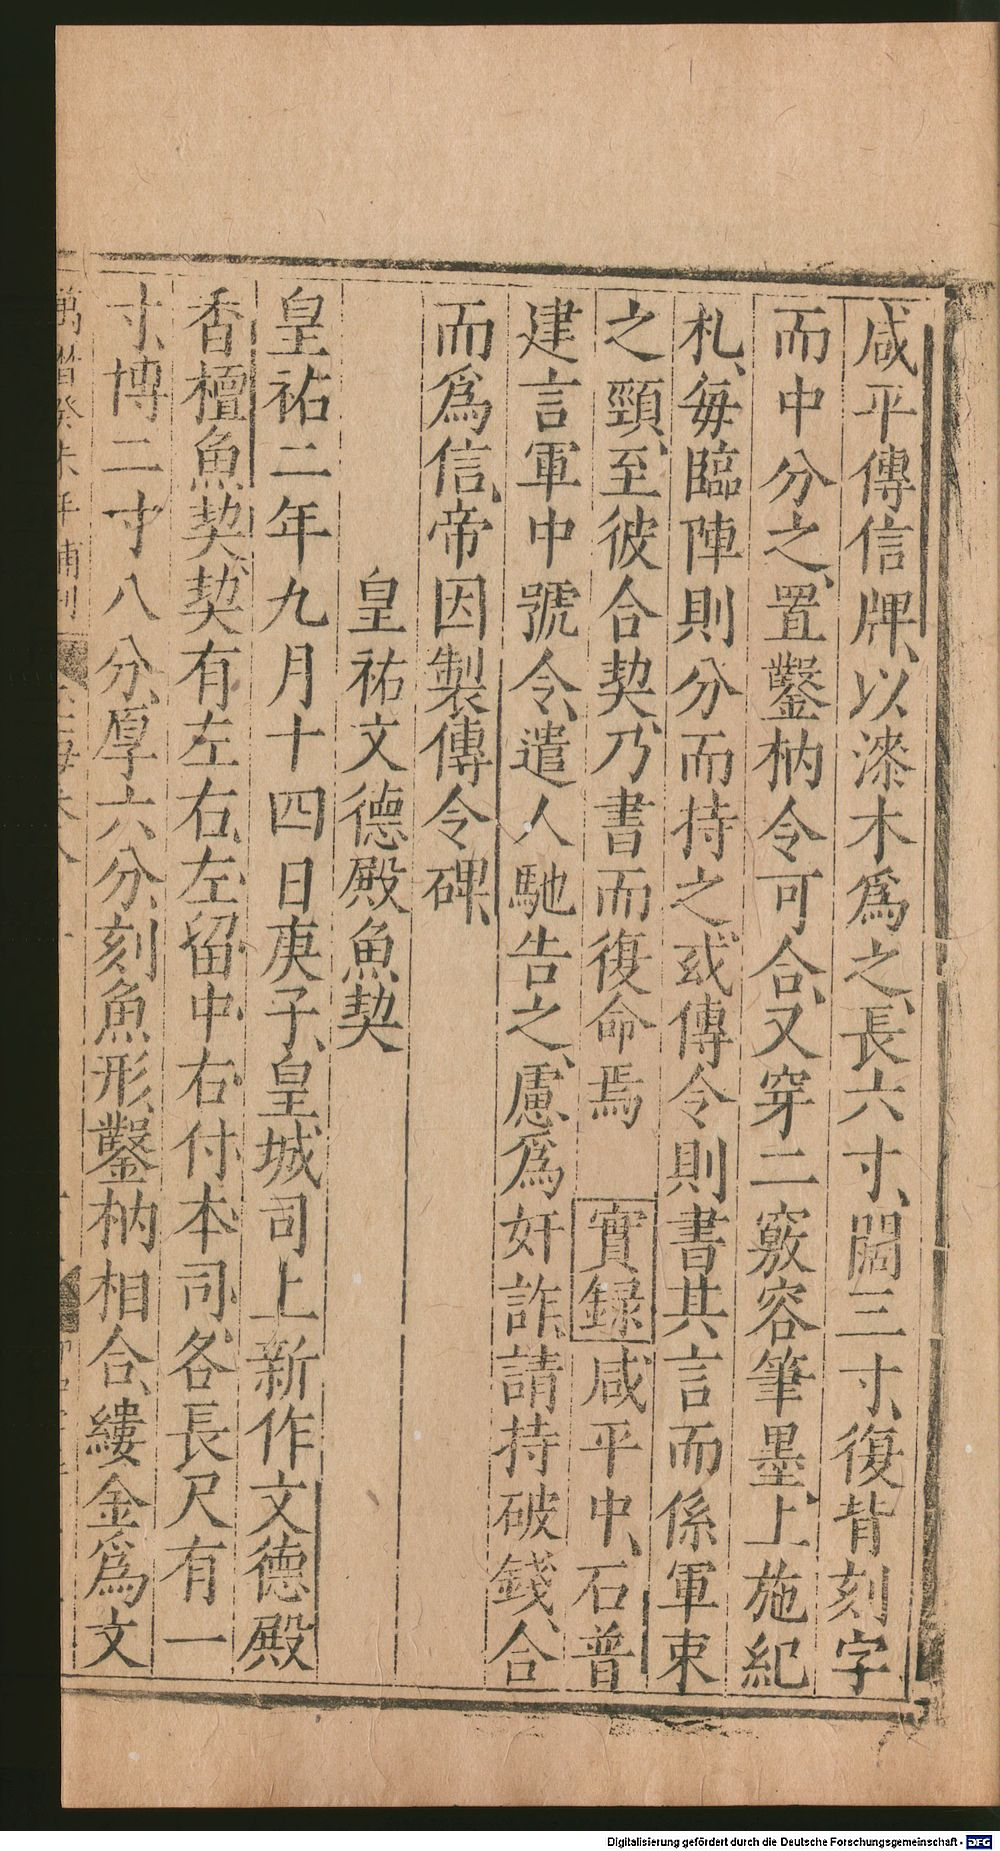 咸平傳信牌、以漆木爲之、長六寸、闊三寸、復背刻字
而中分之、置鑿枘令可合、又穿二竅容筆墨、上施紀
札、每臨陣則分而持之、或傳令則書其言而係軍吏
之頸、至彼合契、乃書而復命焉　實録　咸平中、石普
建言軍中號令、遣人馳告之、慮爲奸詐、請持破錢、合
而爲信、帝因製傳令碑、
皇祐文德殿魚契
皇祐二年九月十四日庚子、皇城司上新作文德殿
香檀魚契、契有左右、左留中、右付本司、各長尺有一
寸、博二寸八分、厚六分、刻魚形、鑿枘相合、縷金爲文
萬曆癸未年補刊
Digitalisierung gefördert durch die Deutsche Forschungsgemeinschaft - DFG